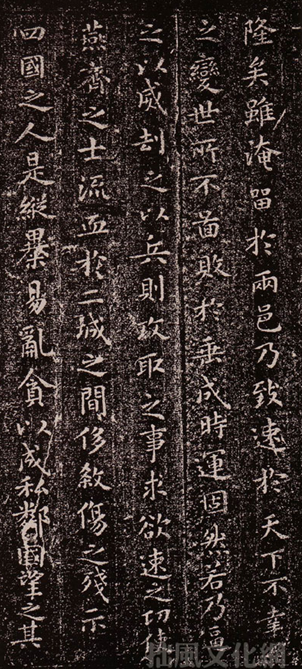 隆矣雖淹留於兩邑乃致速於天下不幸
之變世所不啚敗於垂成時運固然若乃逼
之以威刧之以兵則攻取之事求欲速之功使
燕齊之士流血於二城之間侈殺傷之殘示
四國之人是縱暴易亂貪以成私鄰國望之其